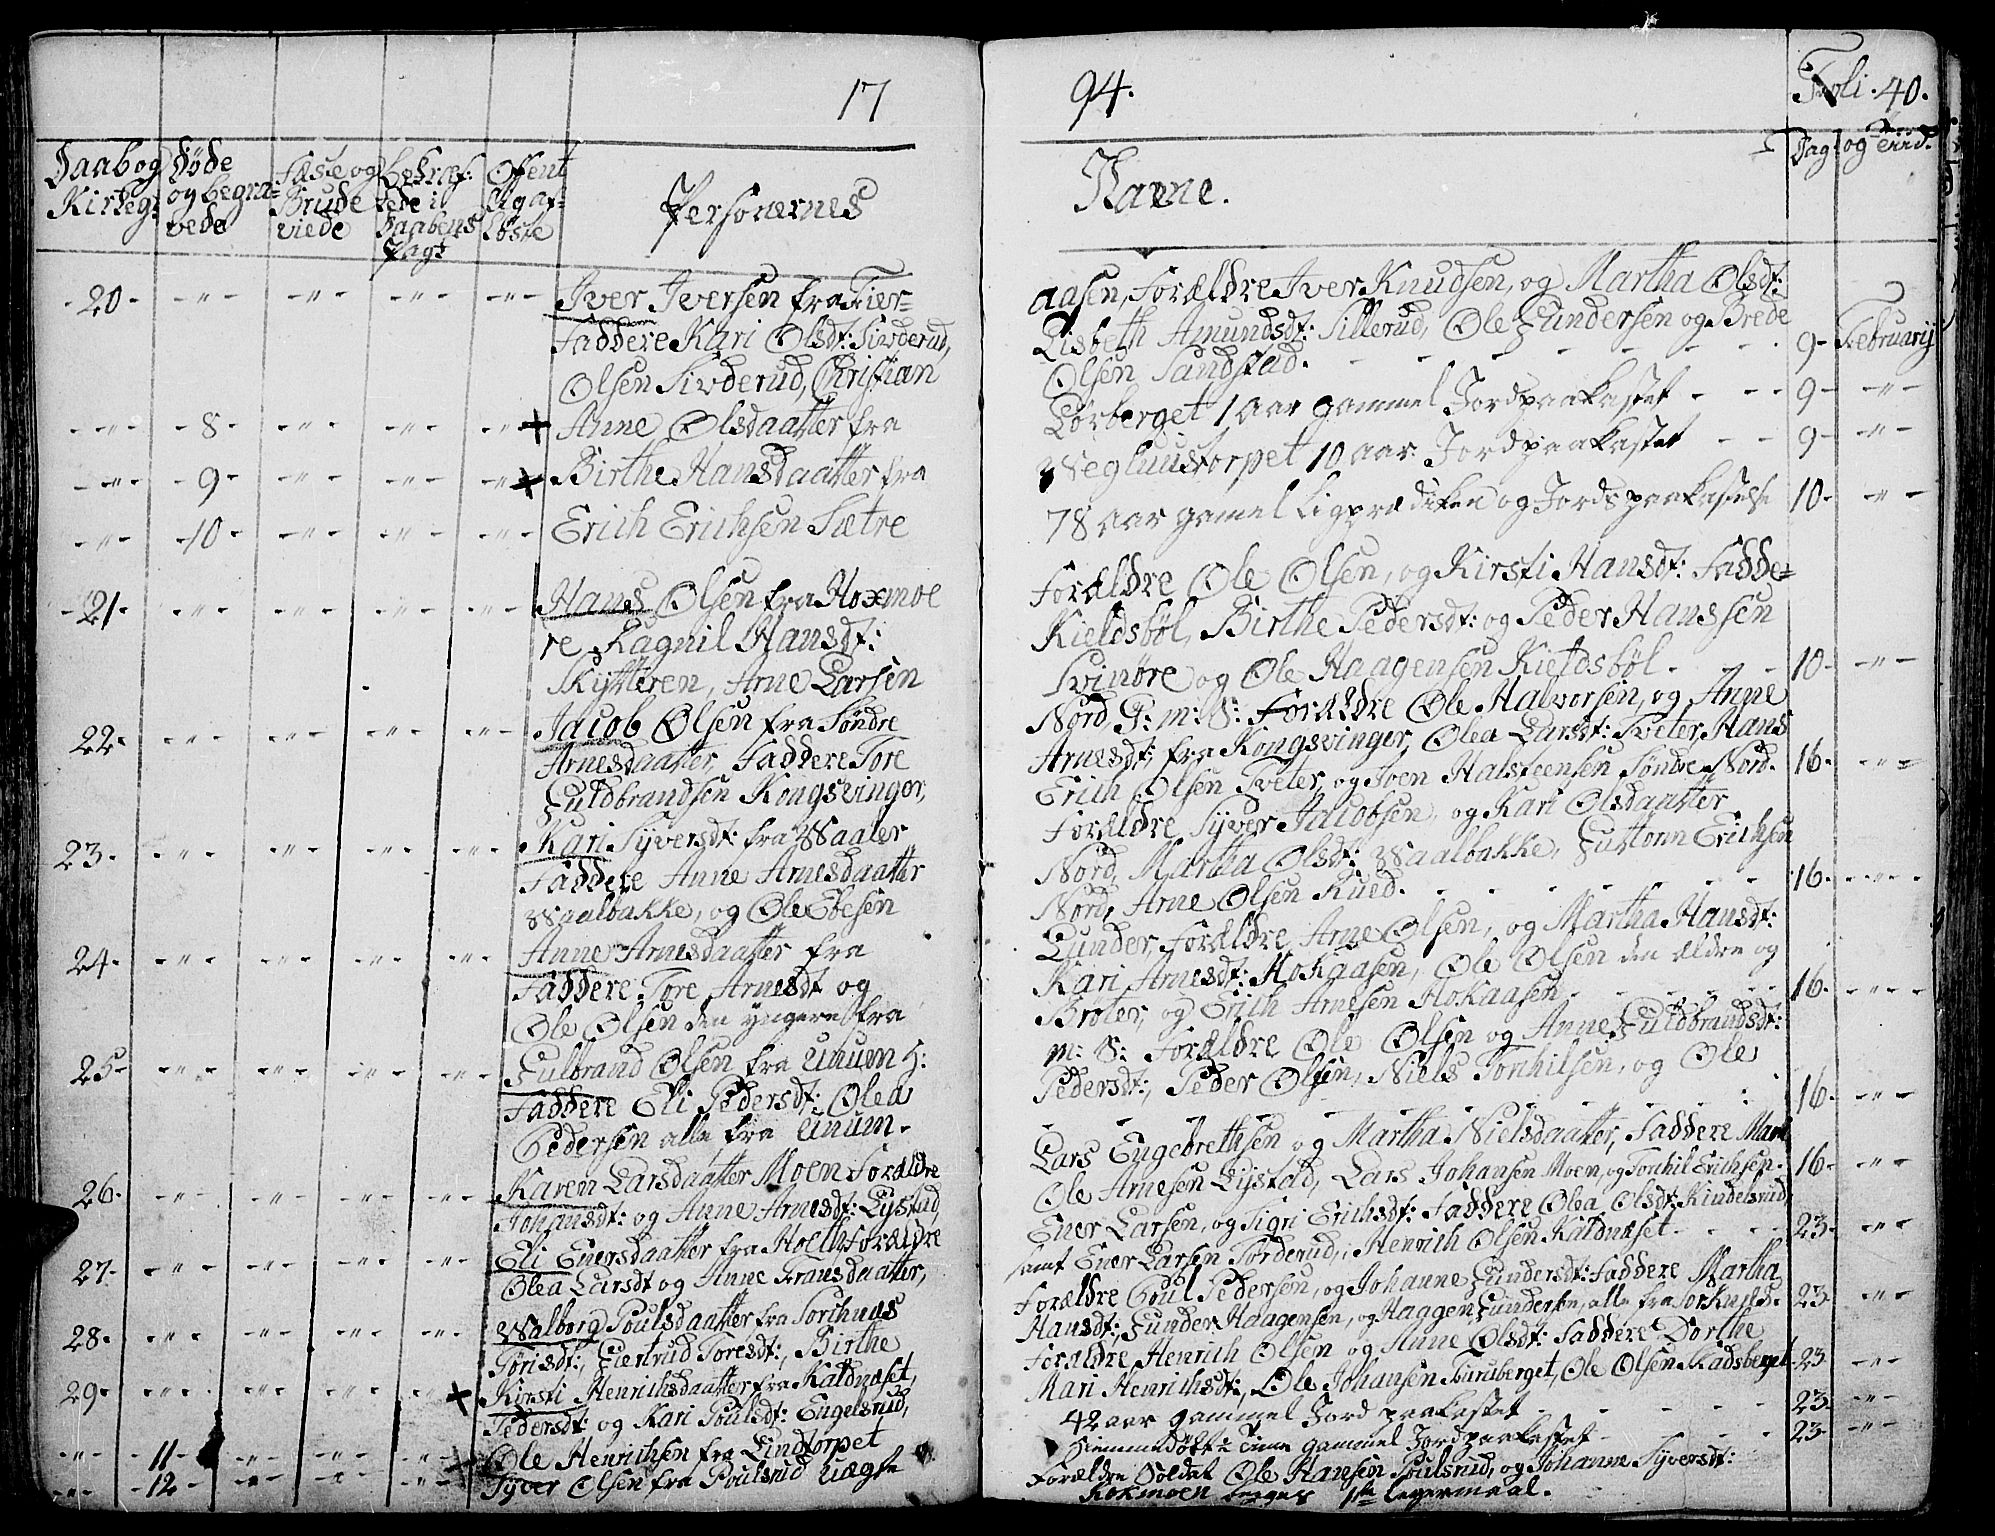 17
94.
Foli. 40.
Daab og Kirkeg:
Døde og begravede
Fæste og Brudeviede
bekræftede i Daabens Pagt
Offentlig afløste
Personernes
Navne.
Dag og
-20- Iver Iversen fra Tier-
aasen, Forældre Iver Knudsen, og Martha Olsdt:
Faddere Kari Olsdt: Sivderud,
Lisbeth Amundsdt: Sillerud, Ole Gundersen og Brede
Olsen Sivderud, Christian
Olsen Sandstad. 9- Februarij
-8- + Anne Olsdaatter fra
Lørberget 1 aar gammel Jordpaakastet - 9-
-9- + Birthe Hansdaatter fra
10 aar Jordpaakastet - 9-
-10- Erich Erichsen Sætre
78 aar gamel Ligprædiken og Jordspaakastelse 10-
-21- Hans Olsen fra Hoxmoe
Forældre Ole Olsen, og Kirsti Hansdt: Fadde=
re Ragnil Hansdt:
Kieldsbøl, Birthe Pedersdt: og Peder Hanssen
Skytteren, Arne Larsen
Svinøre og Ole Haagensen Kieldsbøl - 10-
22- Jacob Olsen fra Søndre
Nord G: m: S: Forældre Ole Halvorsen, og Anne
Arnesdaatter, Faddere Tore
Arnesdt: fra Kongsvinger, Olea Larsdt: Tveter, Hans
Guldbrandsen Kongsvinger,
Erich Olsen Tveter, og Joen Halsteensen Søndre Nord. 16-
23- Kari Syversdt: fra Waaler
Forældre Syver Jacobsen, og Kari Olsdaatter
Faddere Anne Arnesdaatter
Nord, Martha Olsdt: Waalbakke, Guttorm Erichsen
Waalbakke, og Ole Ebesen
Nord, Arne Olsen Rued. 16-
24- Anne Arnesdaatter fra
Gunder, Forældre Arne Olsen, og Martha Hansdt:
Faddere Tore Arnesdt og
Kari Arnesdt: Hokaasen, Ole Olsen den ældre og
Ole Olsen den yngere fra
Brøter, og Erich Arnesen Hokaasen 16-
25- Gulbrand Olsen fra Unum G:
m: S: Forældre Ole Olsen og Anne Guldbrandsdt:
Faddere Eli Pedersdt: Olea
Pedersdt:, Peder Olsen, Niels Tonhilsen, og Ole
Pedersen alle fra Unum. 16-
26- Karen Larsdaatter Moen Forældre
Lars Engebrethsen og Martha Nielsdaatter, Faddere Mari
Johansdt: og Anne Arnesdt: Lystad,
Ole Arnesen Lystad, Lars Johansen Moen, og Tonhil Erichsen. 16-
27- Eli Enersdaatter fra Holth Forældre
Ener Larsen, og Sigri Erichsdt: Faddere Olea Olsdt: Kindelsrud
Olea Larsdt og Anne Fransdaatter,
samt Ener Larsen Torderud, Henrich Olsen Kaldnæset 23-
28- Walborg Poulsdaatter fra Sorknæs
Forældre Poul Pedersen, og Johanne Gundersdt: Faddere Martha
Torisdt:, Giertrud Toresdt:, Birthe
Hansdt:, Gunder Haagensen, og Haagen Gundersen, alle fra Sorknæs. 23
29- + Kirsti Henrichsdaatter fra Kaldnæset,
Forældre Henrich Olsen og Anne Olsdt: Faddere Dorthe
Pedersdt: og Kari Poulsdt: Engelsrud,
Mari Henrichsdt:, Ole Johansen Bursberget, Ole Olsen Skadsberget 23
-11- Ole Henrichsen fra Lindtorpet
42 aar gammel Jord paakastet 23-
-12- Syver Olsen fra Poulsrud Uægte
Hiemmedøbt 1 Time gammel Jordpaakastet 23-
Forældre Soldat Ole Hansen Poulsrud, og Johanne Syversdt:
Kokmoen begges 1ste Legermaal.